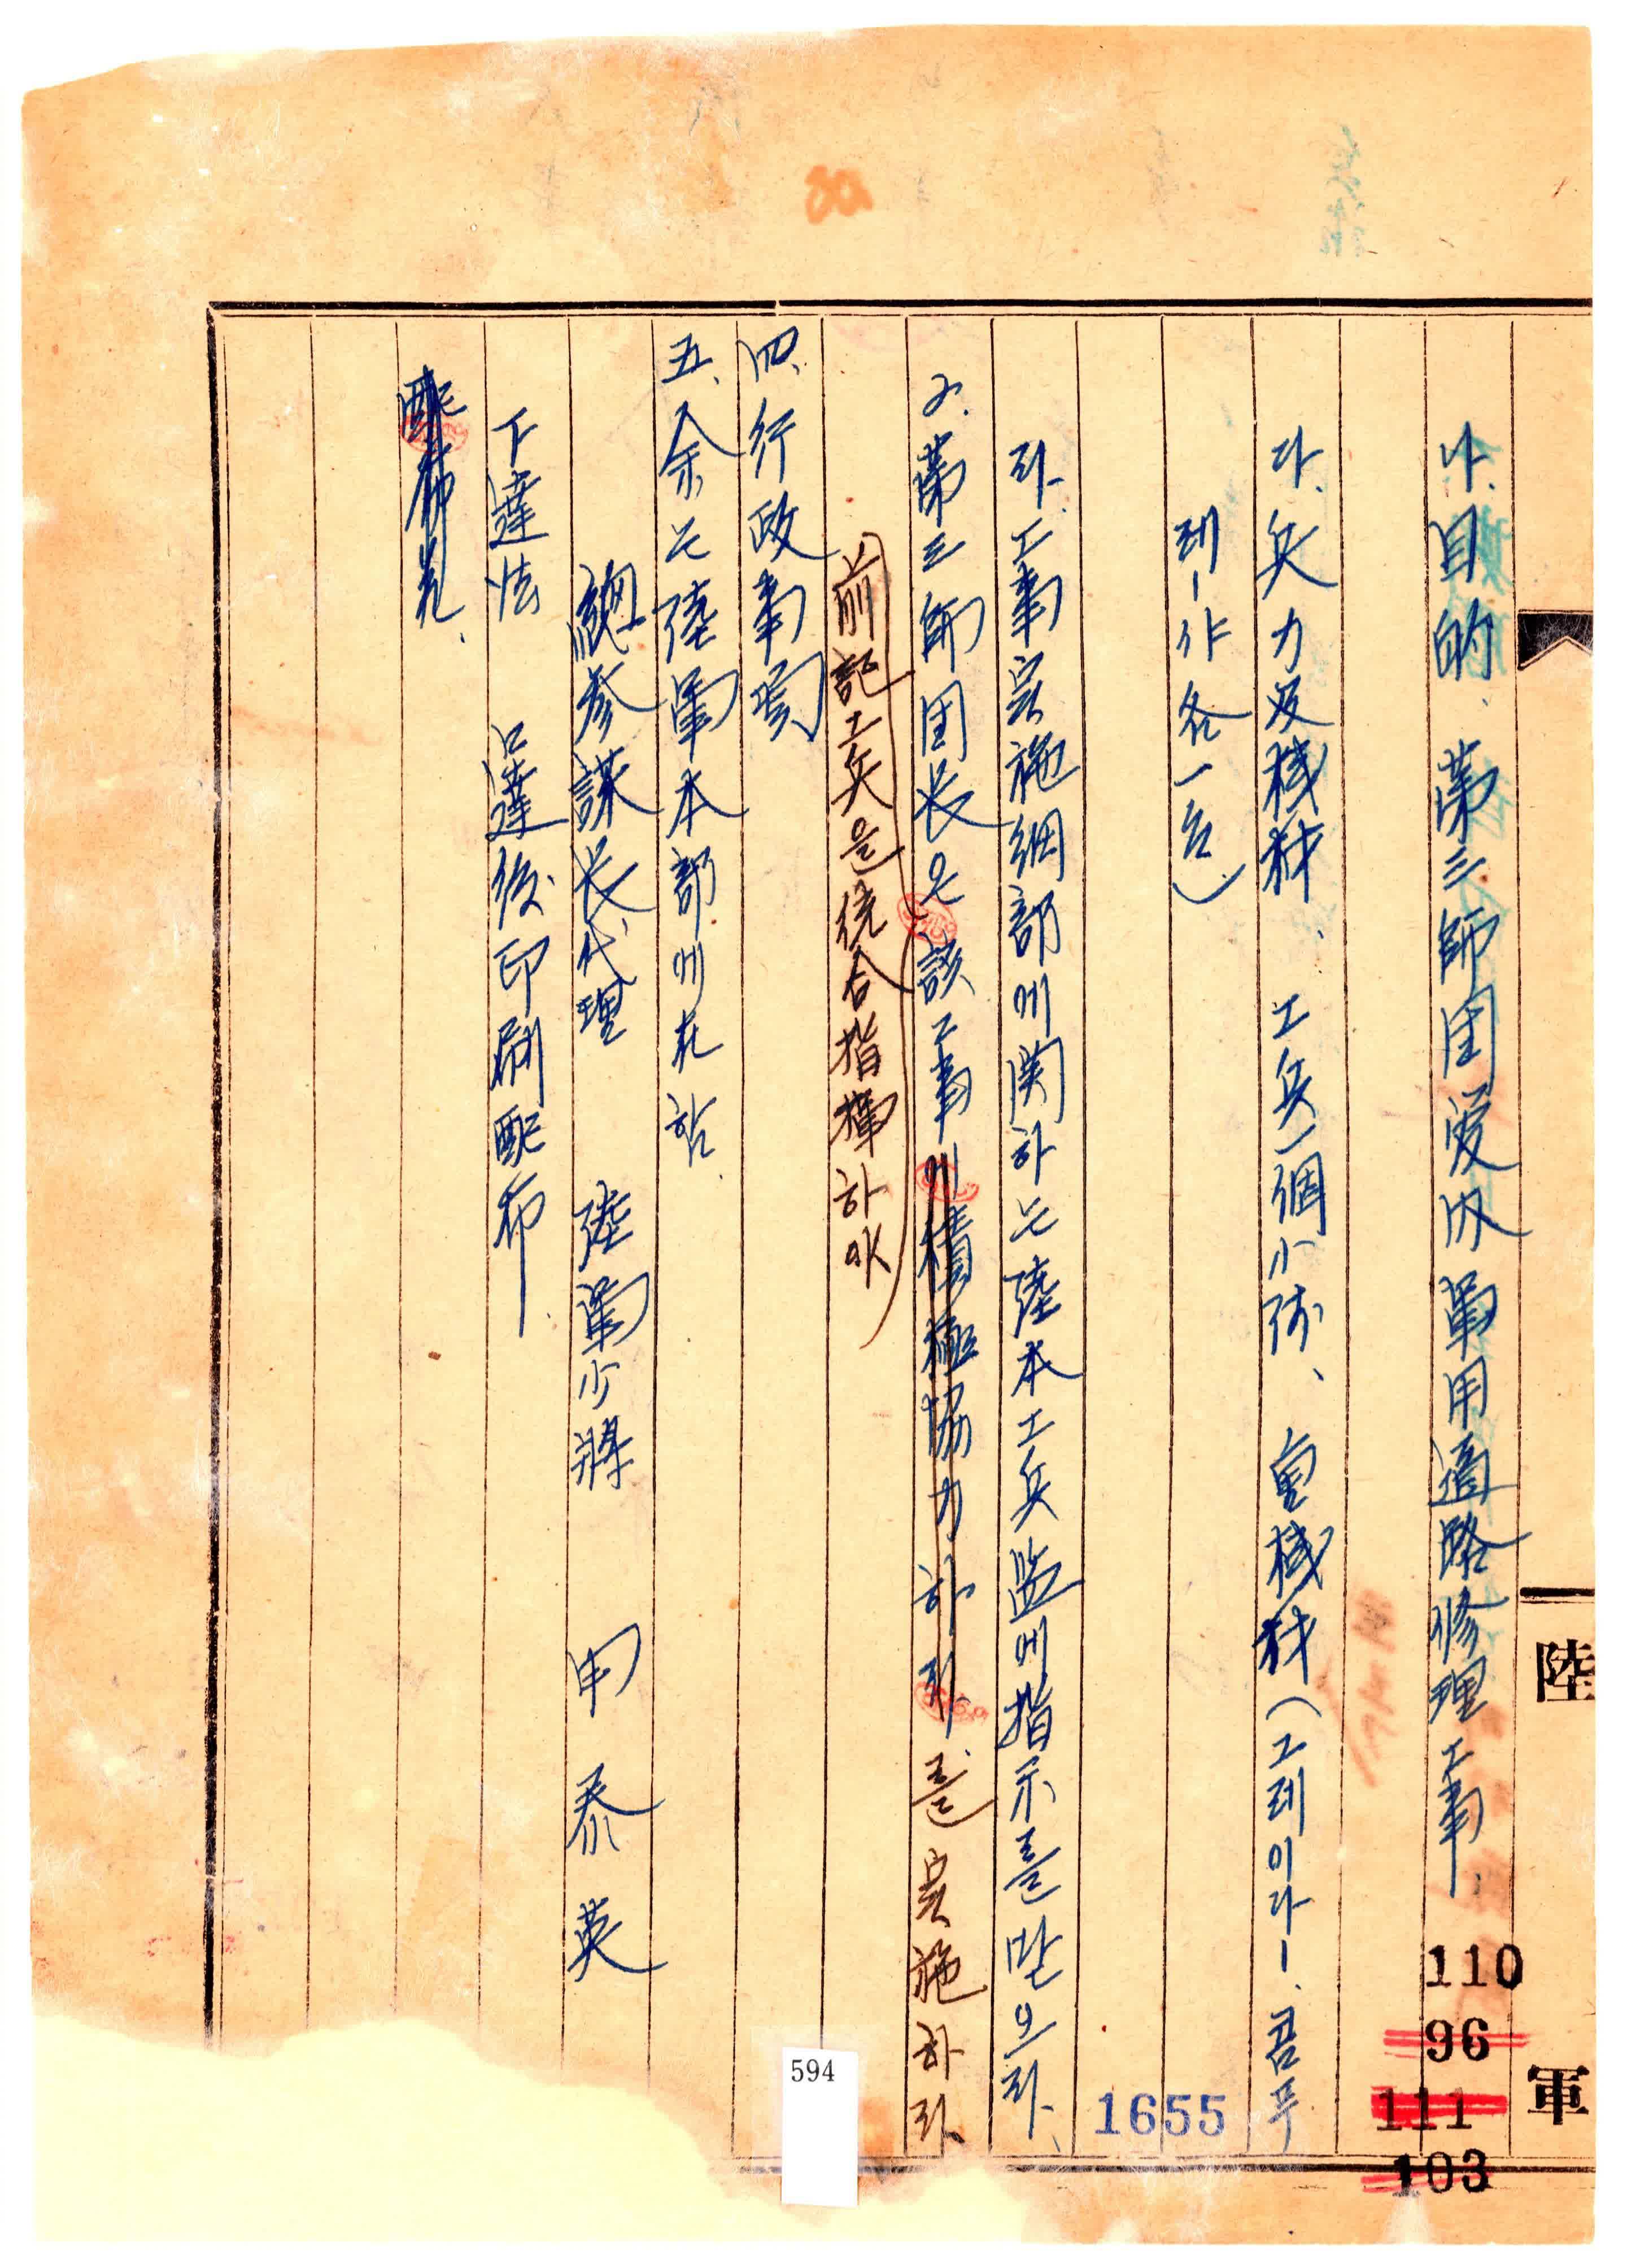 나. 目的、第三師団管内軍用道路修理工事.
다. 兵力及機材、工兵一個小隊、重機材(그레이다ー、콤푸
레ー샤 各一台)
라. 工事実施細部에関하는陸本工兵監에指示를받으라.
2. 第三師団長은該工事에積極協力하라를実施하라
前記工兵을統合指揮하야
四、行政事項
五、余는陸軍本部에在함.
総参謀长代理 陸軍少将 申泰英
下達法 口達後印刷配布
配布先.
陸
軍
110
96
111
103
1655
594